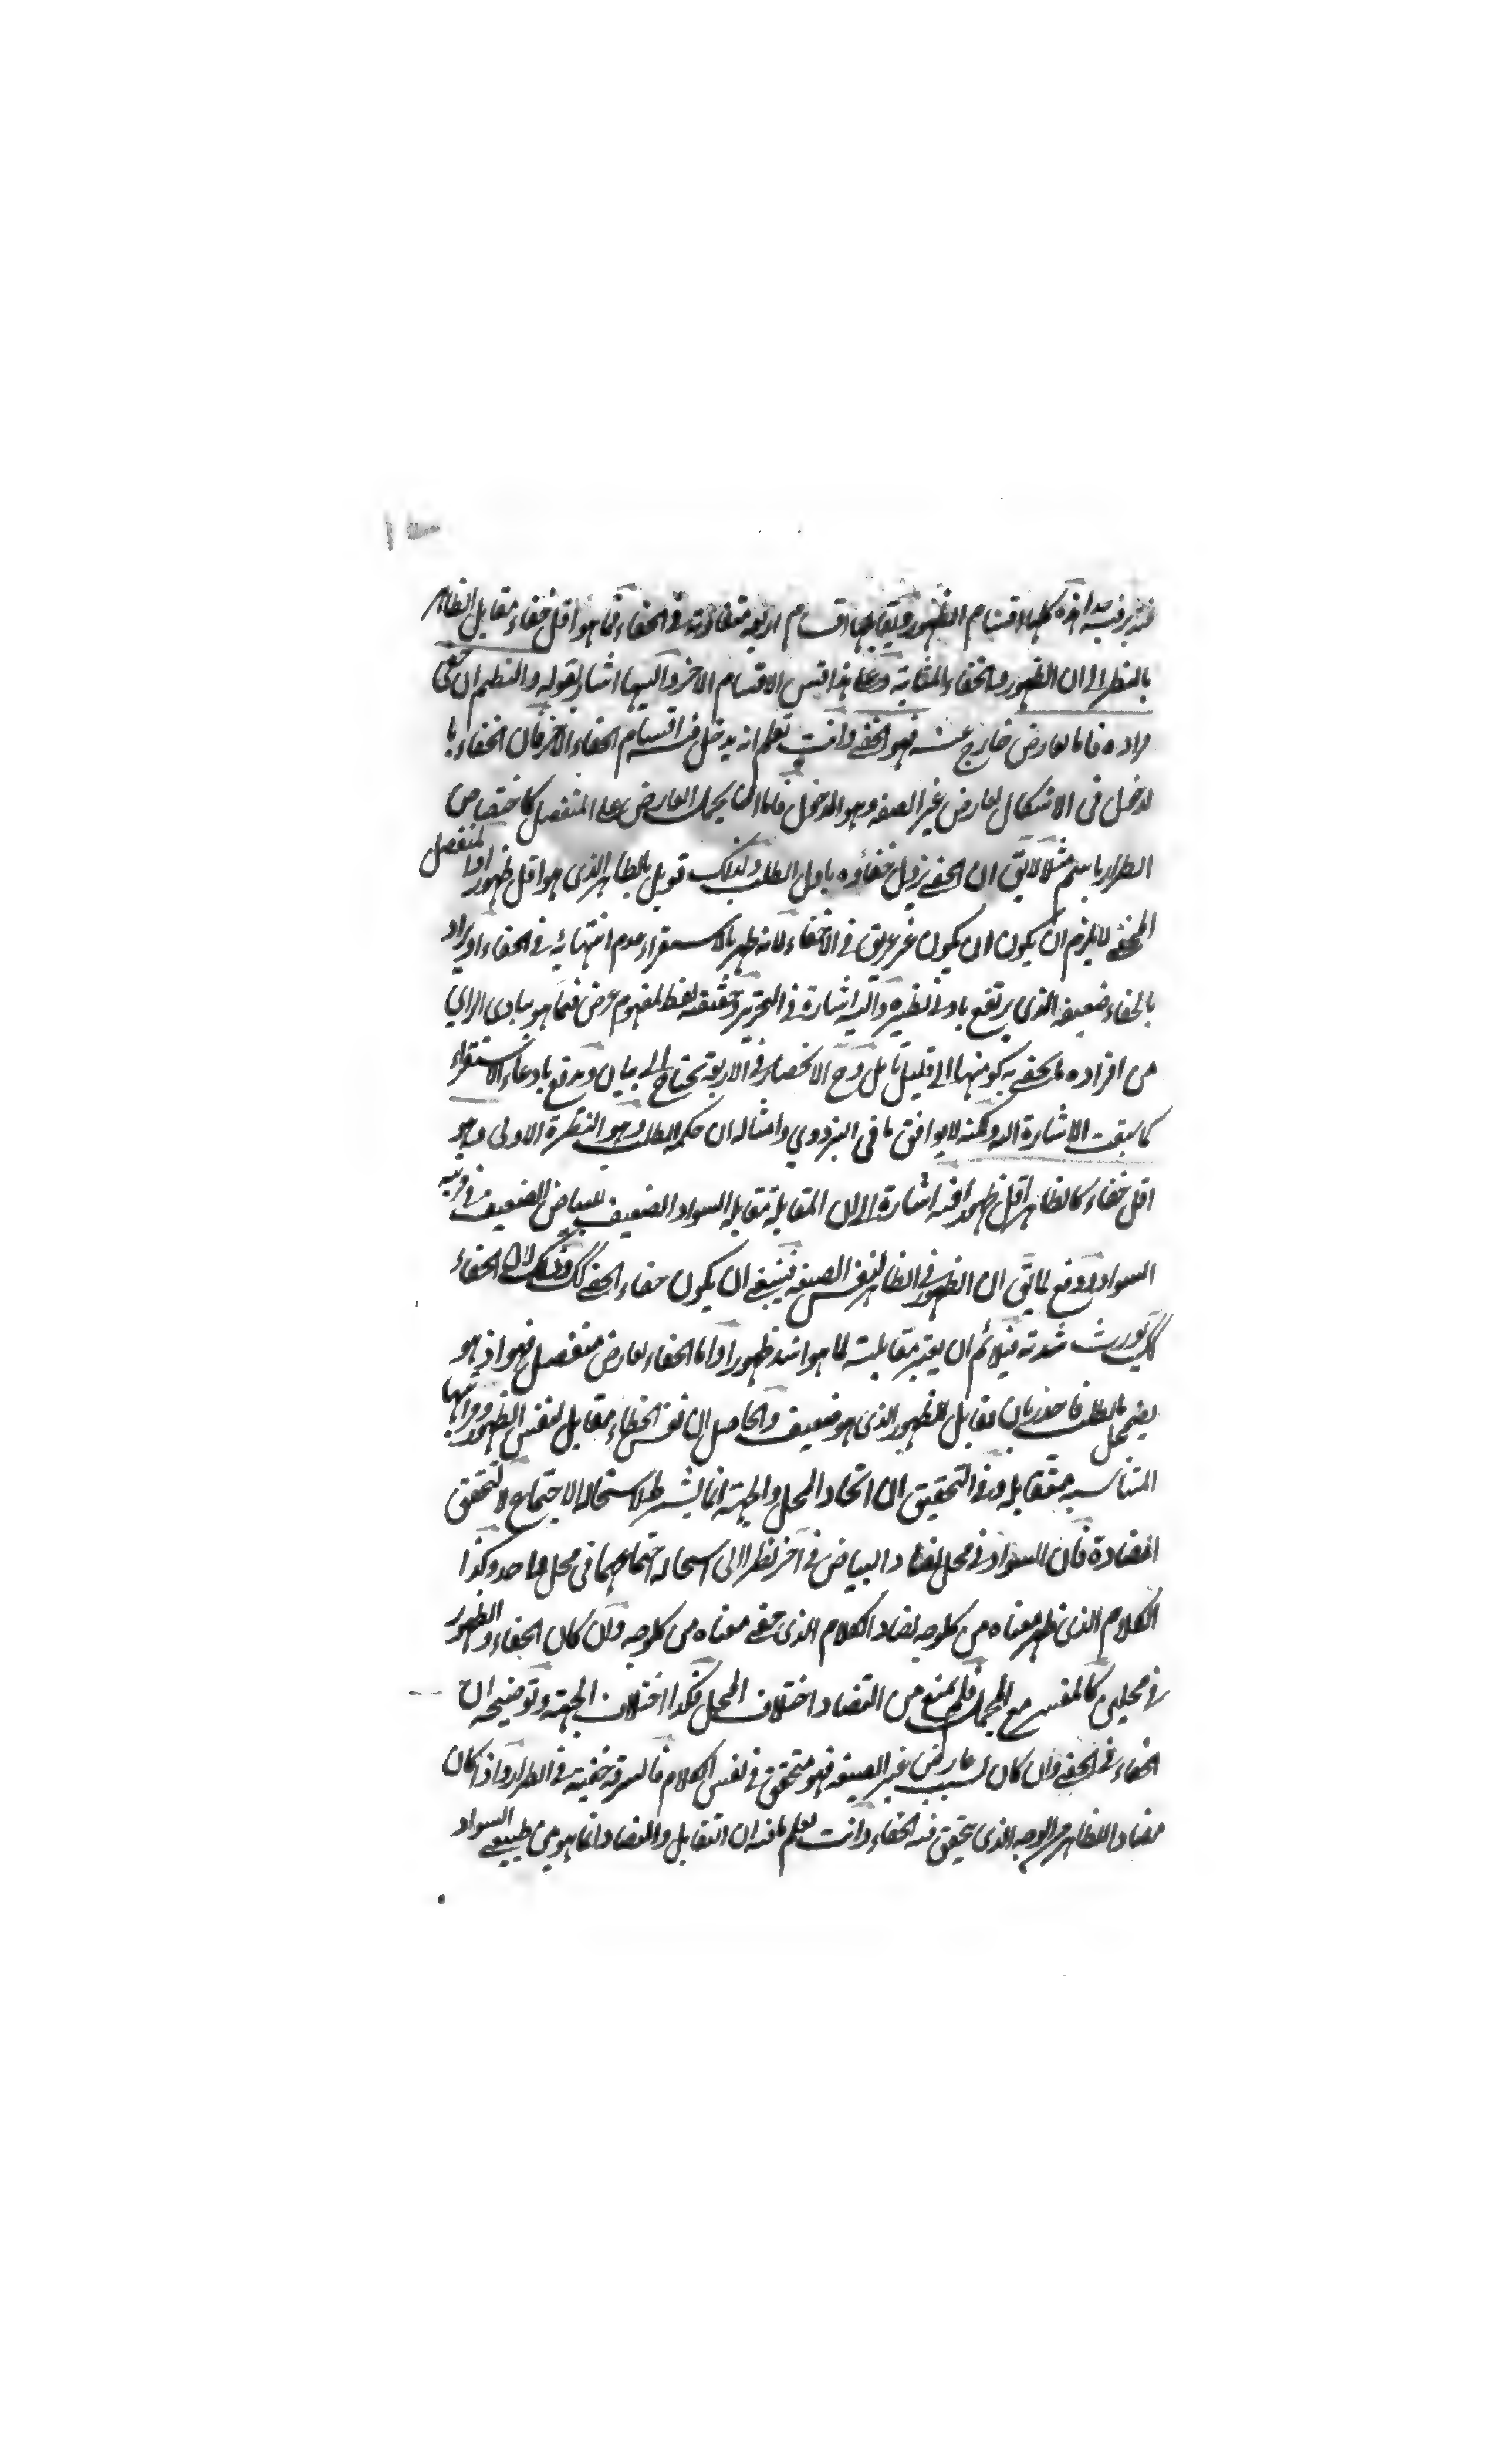 فتدبر فيه هذه كلها اقسام الظهور ويقابلها اقسام اربعة متفاوتة في الخفاء فما هو اقل خفاء مقابل الظاهر
بالنظر الى ان الظهور والخفاء وعلى هذا قس الاقسام الاخر واليها اشار بقوله والنظم ان خفي
مراده فاما لعارض خارج عنه فهو الخفي وانت تعلم انه يدخل فيه اقسام الخفاء الاخر فان الخفاء
لدخول في الاشكال لعارض غير الصيغة وهو الدخول فاما ان يحمل العارض على المنفصل كاختصاص
الطرار باسم مثلا لا يق ان الخفي يزول خفاؤه باول الطلب ولذلك قوبل بالظاهر الذي هو اقل ظهورا
المخفي لا يلزم ان يكون ان يكون غير عريق في الاخفاء لانه ظهر بالاستقراء عدم انتهائه في الخفاء او يراد
بالخفاء ضعيفه الذي يرتفع بادنى نظيره واليه اشارة في التحرير وحقيقته لفظ لمفهوم عرض فيما هو ببادي الراي
من افراده ما يخفى به كونه منها الى قليل تامل وح الانحصار في الاربعة يحتاج الى بيان ويدفع بادعاء الاستقراء
كما سبقت الاشارة اليه ولكنه لا يوافق ما في البزدوي وامثاله ان حكمه الطلب وهو النظرة الاولى وهو
اقل خفاء كالظاهر اقل ظهورا فيه اشارة الى ان المقابلة مقابلة السواد الضعيف للبياض الضعيف في مرتبة
السواد ودفع لما يق ان الظهور في الظاهر لنفس الصيغة فينبغي ان يكون خفاء الخفي كك وذلك لان الخفاء
كك يورث شدته فيلائم ان يعتبر مقابلته لما هو اشد ظهورا واما الخفاء لعارض منفصل فهو اذ هو
يضمحل بالطلب فاحذر بان يقابل للظهور الذي هو ضعيف والحاصل ان نفس الخفاء مقابل لنفس الظهور ومراتبها
المتناسبة متقابلة وفي التحقيق ان اتحاد المحل والجهة انما يشترط لاستحالة الاجتماع لا لتحقق
المضادة فان السواد في محل يضاد البياض في آخر نظرا الى استحالة اجتماعهما في محل واحد وكذا
الكلام الذي ظهر معناه من كل وجه يضاد الكلام الذي خفي معناه من كل وجه وان كان الخفاء والظهور
في محلين كالمفسر مع المجمل فلم يمنع من التضاد اختلاف المحل فكذا اختلاف الجهة وتوضيحه ان
الخفاء في الخفي وان كان بسبب عارض غير الصيغة فهو متحقق في نفس الكلام فالسرقة خفية في الطرار واذا كان
مضادا للظاهر من الوجه الذي يتحقق فيه الخفاء وانت تعلم ما فيه ان التقابل والتضاد انما هو بين طبيعتي السواد